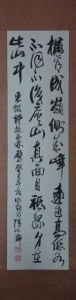 橫看成嶺側成峰遠近高低各
不同不識廬山真面目祇緣身在
此山中 東坡詩題西林壁